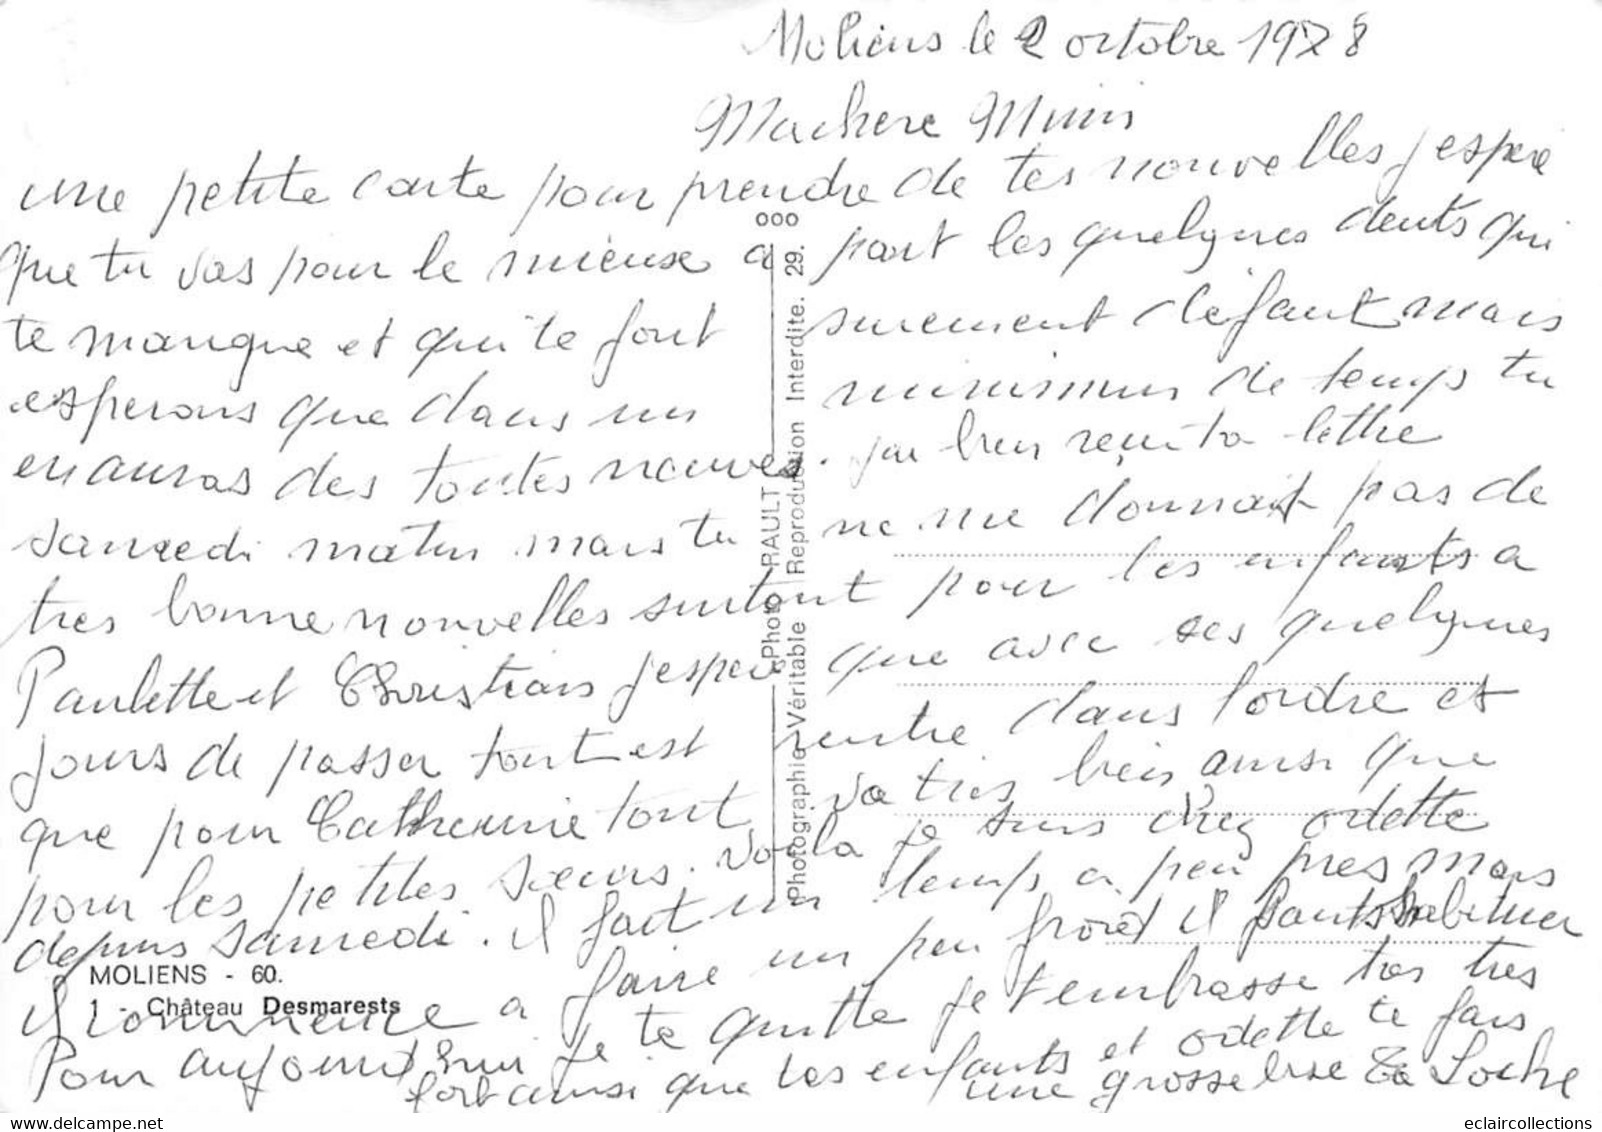 Moliens le 2 octobre 1978
Machere Mimi
une petite carte pour prendre de tes nouvelles jespere
que tu vas pour le mieuse a part les quelques dents qui
te manque et qui te font surement défaut mais
esperons que dans un minimum de temps tu
en auras des toutes neuves. jai bien reçu ta lettre
samedi matin mais tu ne me donnait pas de
tres bonne nouvelles surtout pour les enfants a
Paulette et Christian jespere que avec ses quelques
jours de passer tout est rentre dans lordre et
que pour Catherine tout va tres bien ainsi que
pour les petites sœurs. voila je suis chez odette
depuis samedi. il fait un temps a peu pres mais
il commence a faire un peu froid il faut shabituer
Pour aujourd'hui je te quitte je t'embrasse tres tres
fort ainsi que les enfants et odette te fais
une grosse bise Ta
OOO
Photo RAULT
Photographie Véritable Reproduction Interdite. 29.
MOLIENS - 60.
1 - Château Desmarests
eclaircollections